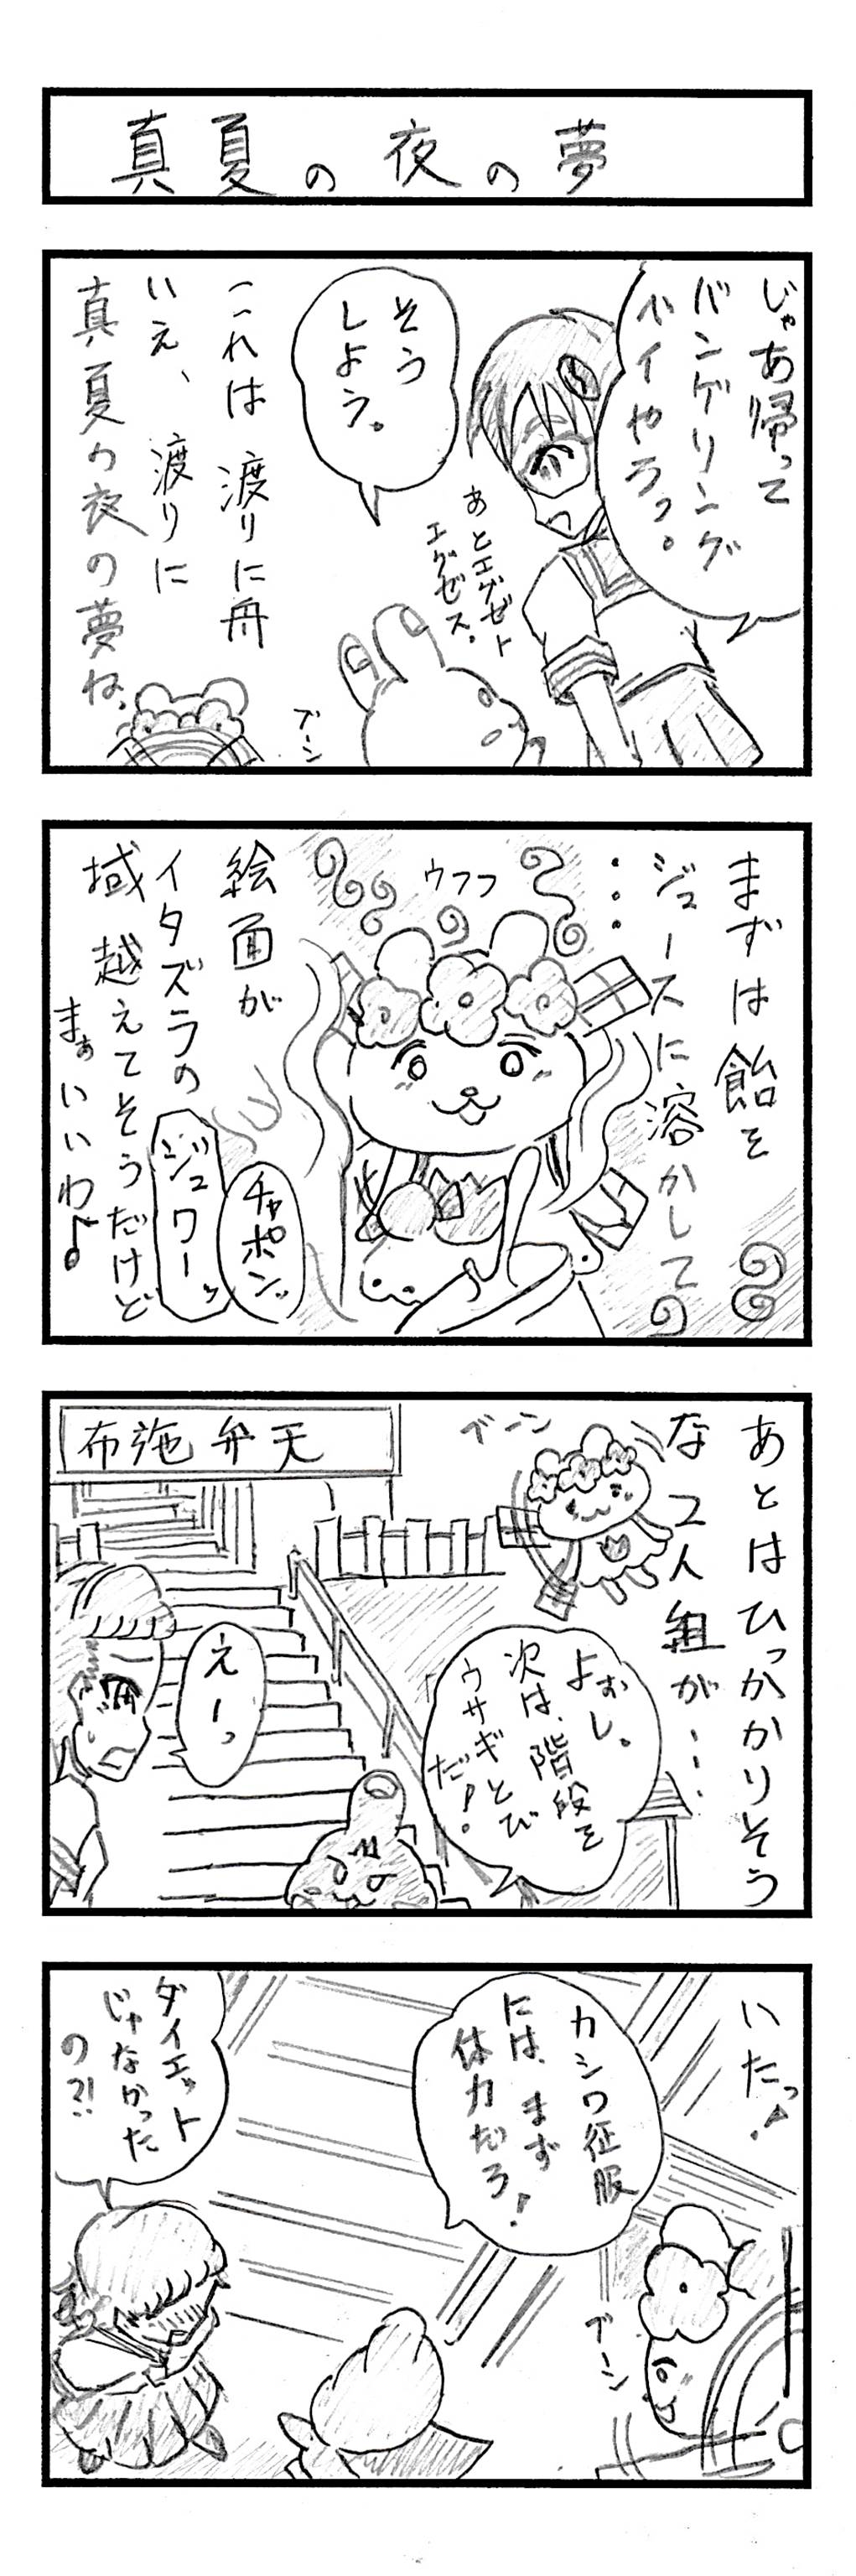 真夏の夜の夢
じゃあ帰って
バンゲリング
ベイやろっ。
あとエグゼト
エグゼス。
そう
しよう。
これは渡りに舟
いえ、渡りに
真夏の夜の夢ね。
ブーン
まずは飴を
ジュースに溶かして
・・・
ウフフ
絵面が
イタズラの
域越えてそうだけど
まぁいいわ♪
チャポンッ
ジュワーッ
あとはひっかかりそう
な2人組が・・・
ブーン
布施弁天
よぉし。
次は、階段を
ウサギとび
だ!
えーっ
いたっ!
カシワ征服
には、まず
体力だろ!
ブーン
ダイエット
じゃなかった
の?!